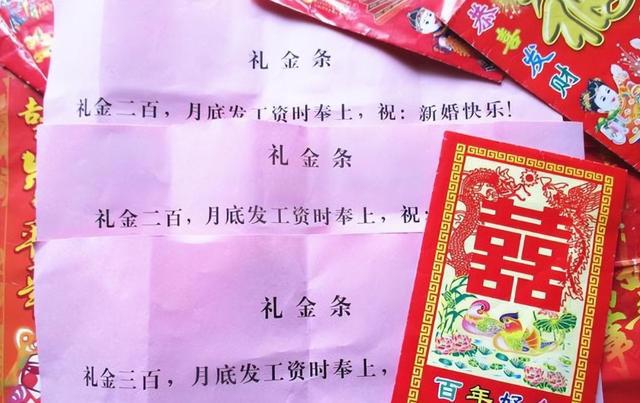 礼金条
礼金二百，月底发工资时奉上，祝：新婚快乐！
礼金条
礼金二百，月底发工资时奉上，祝：
礼金条
礼金三百，月底发工资时奉上，
恭喜发财
福
囍
百年好